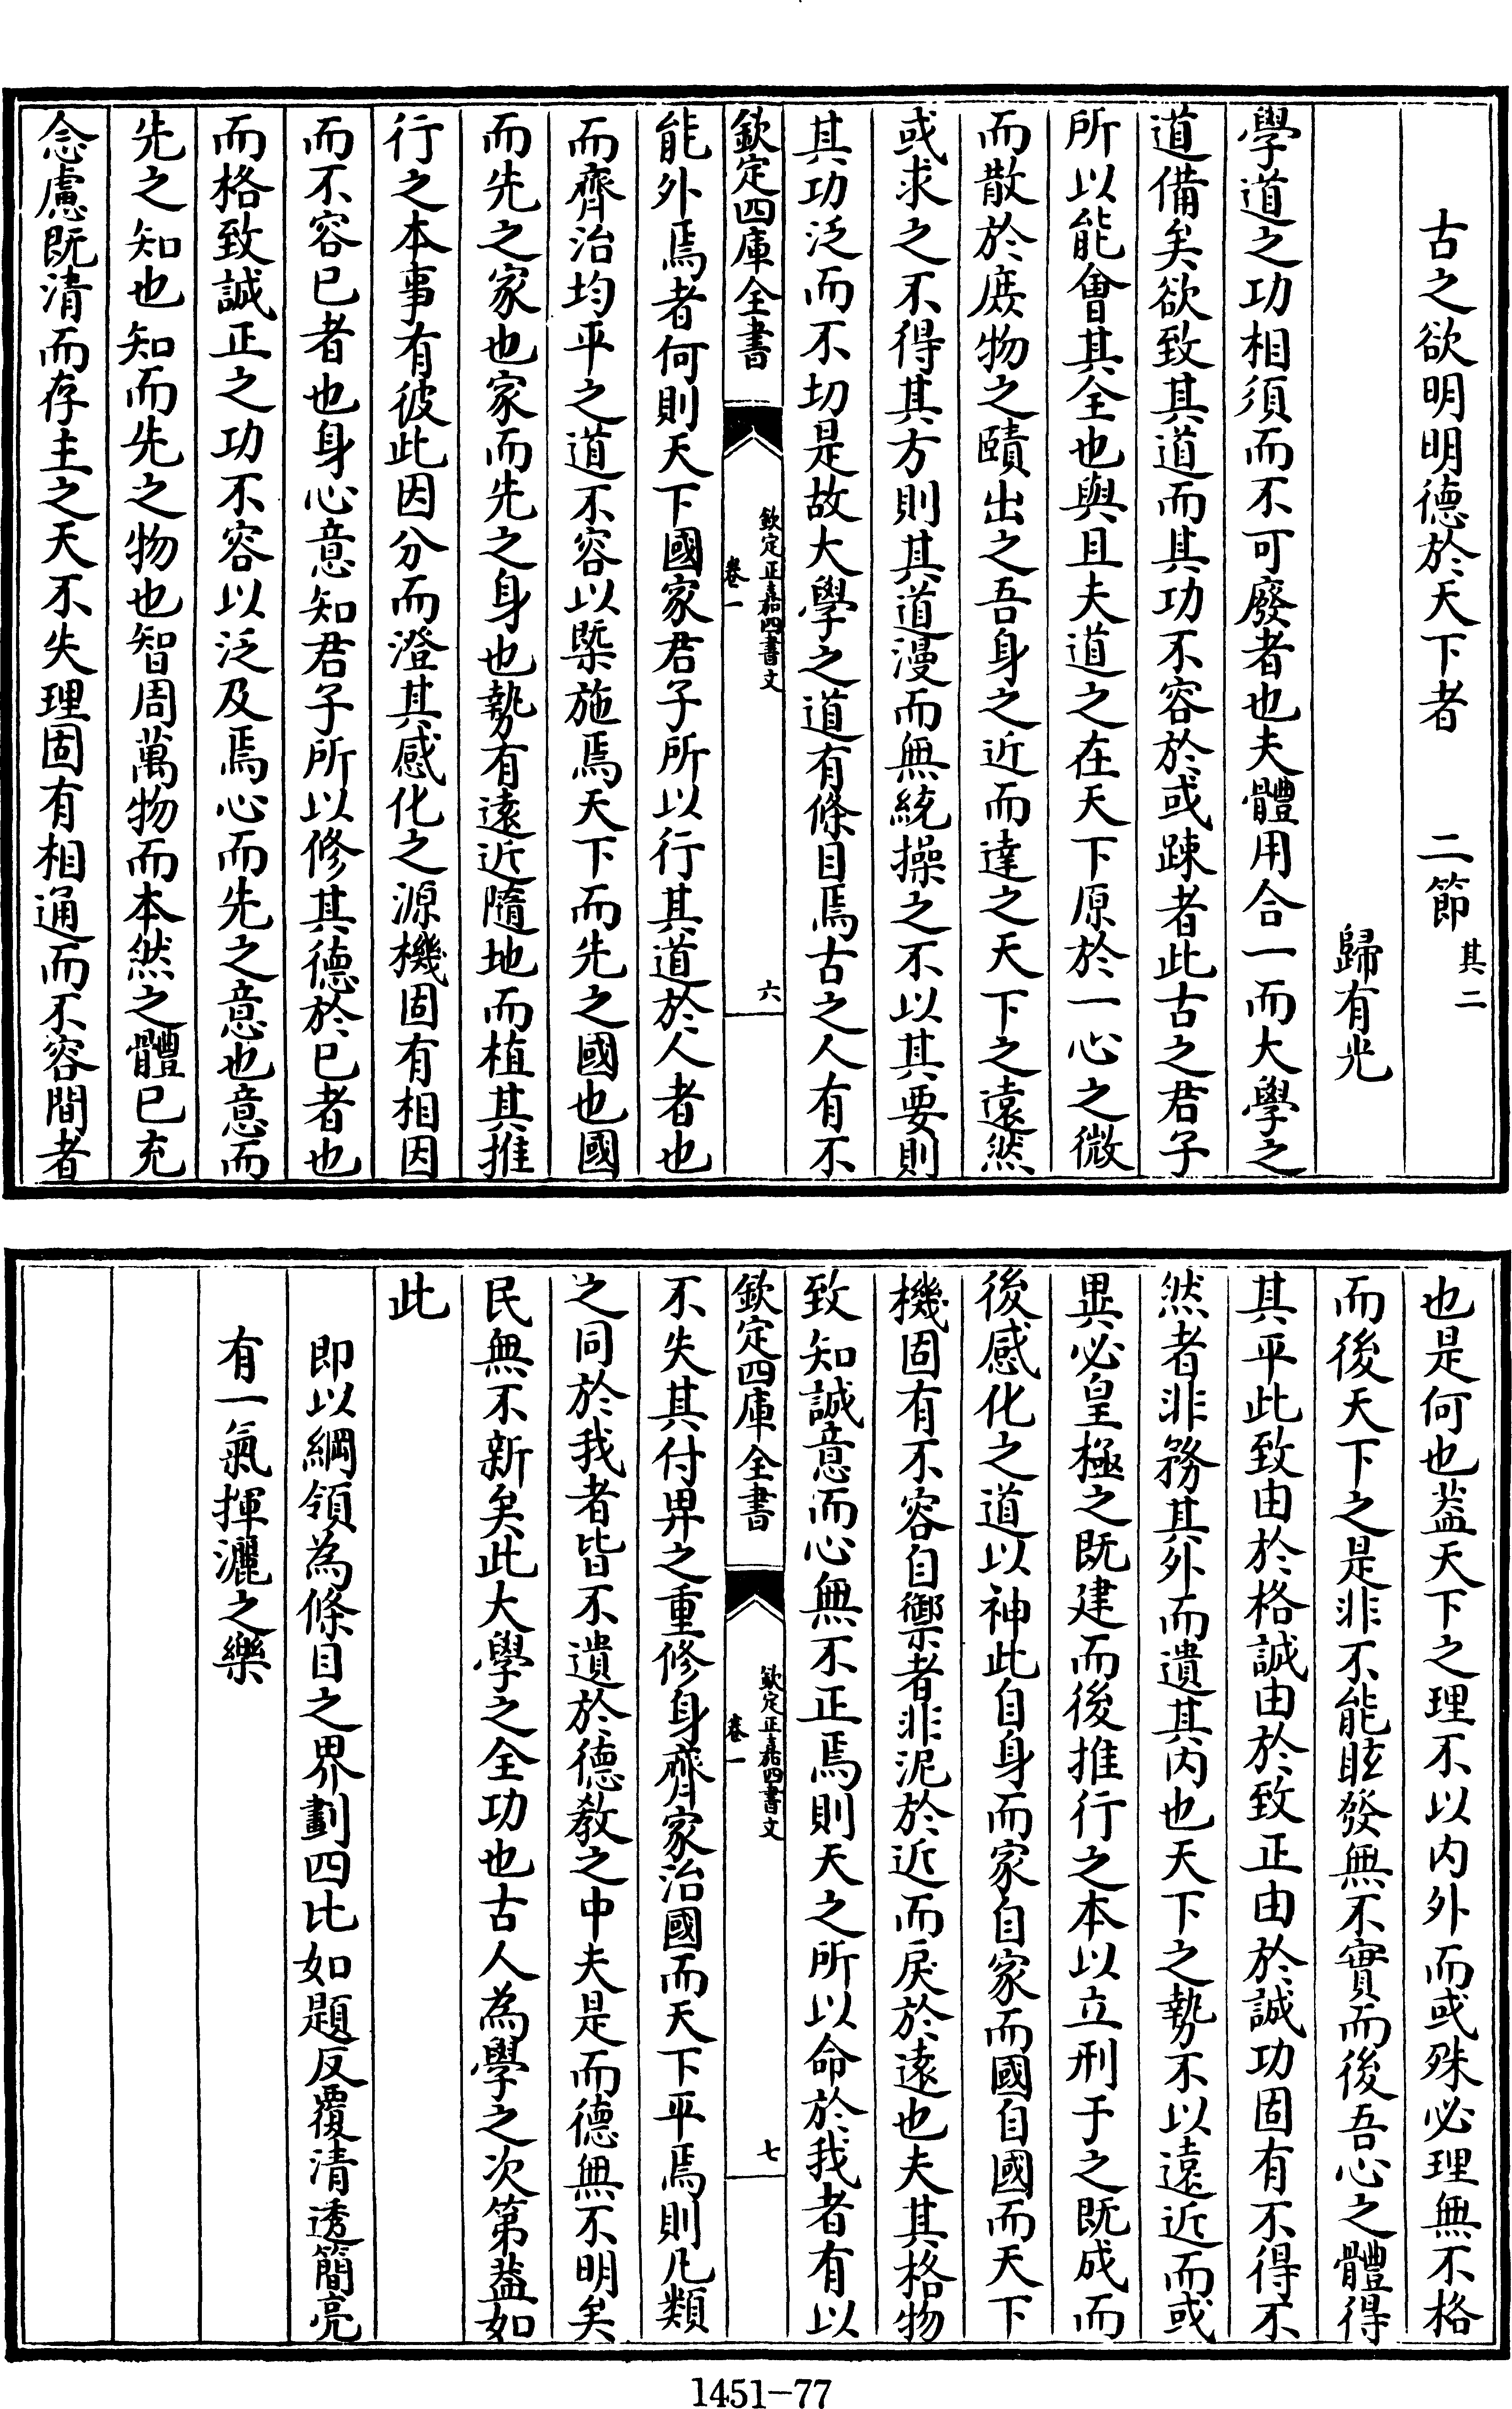 古之欲明明德於天下者　二節其二
歸有光
學道之功相須而不可廢者也夫體用合一而大學之
道備矣欲致其道而其功不容於或踈者此古之君子
所以能會其全也與且夫道之在天下原於一心之微
而散於庶物之賾出之吾身之近而達之天下之遠然
或求之不得其方則其道漫而無統操之不以其要則
其功泛而不切是故大學之道有條目焉古之人有不
欽定四庫全書
欽定正嘉四書文
卷一
六
能外焉者何則天下國家君子所以行其道於人者也
而齊治均平之道不容以槩施焉天下而先之國也國
而先之家也家而先之身也勢有遠近隨地而植其推
行之本事有彼此因分而澄其感化之源機固有相因
而不容已者也身心意知君子所以修其德於已者也
而格致誠正之功不容以泛及焉心而先之意也意而
先之知也知而先之物也智周萬物而本然之體已充
念慮既清而存主之天不失理固有相通而不容間者
也是何也葢天下之理不以内外而或殊必理無不格
而後天下之是非不能眩發無不實而後吾心之體得
其平此致由於格誠由於致正由於誠功固有不得不
然者非務其外而遺其内也天下之勢不以遠近而或
異必皇極之既建而後推行之本以立刑于之既成而
後感化之道以神此自身而家自家而國自國而天下
機固有不容自禦者非泥於近而戾於遠也夫其格物
致知誠意而心無不正焉則天之所以命於我者有以
欽定四庫全書
欽定正嘉四書文
卷一
七
不失其付畀之重修身齊家治國而天下平焉則凡類
之同於我者皆不遺於德教之中夫是而德無不明矣
民無不新矣此大學之全功也古人為學之次第葢如
此
即以綱領為條目之界劃四比如題反覆清透簡亮
有一氣揮灑之樂
1451-77